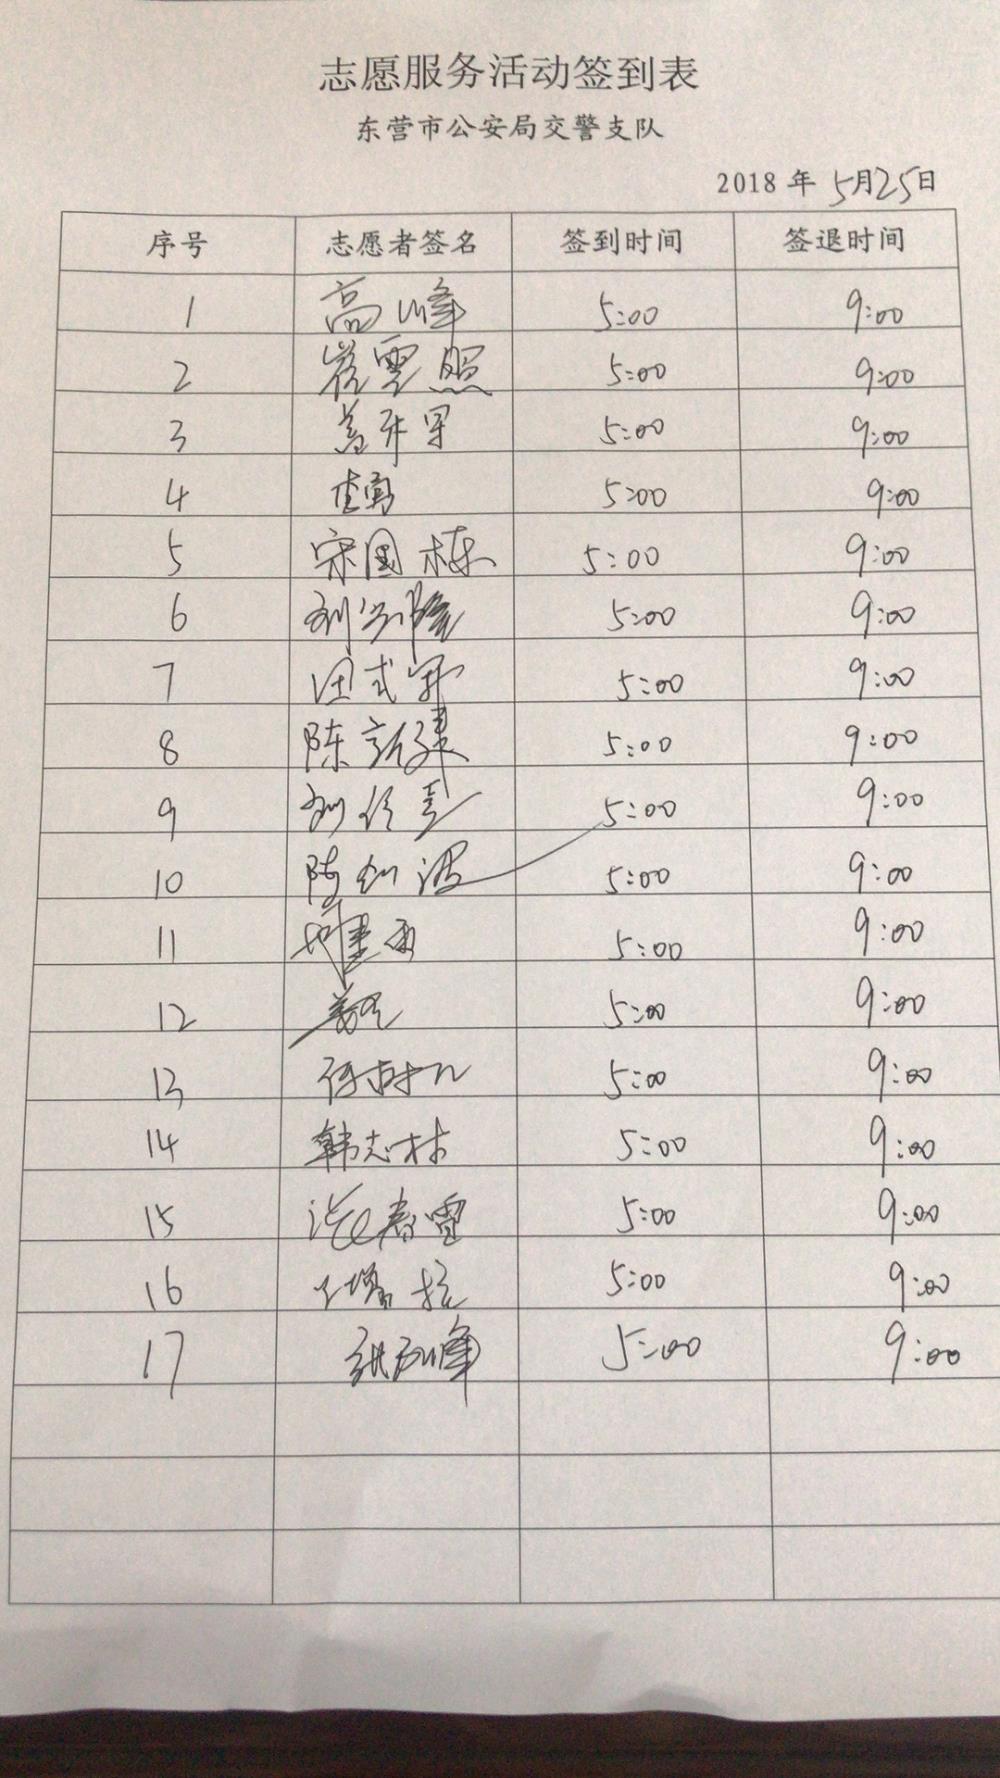 志愿服务活动签到表
东营市公安局交警支队
2018 年 5月25日
序号 志愿者签名 签到时间 签退时间
1 高峰 5:00 9:00
2 崔云照 5:00 9:00
3 5:00 9:00
4 5:00 9:00
5 宋国栋 5:00 9:00
6 5:00 9:00
7 田式军 5:00 9:00
8 陈新建 5:00 9:00
9 5:00 9:00
10 5:00 9:00
11 5:00 9:00
12 5:00 9:00
13 5:00 9:00
14 韩志村 5:00 9:00
15 5:00 9:00
16 5:00 9:00
17 5:00 9:00